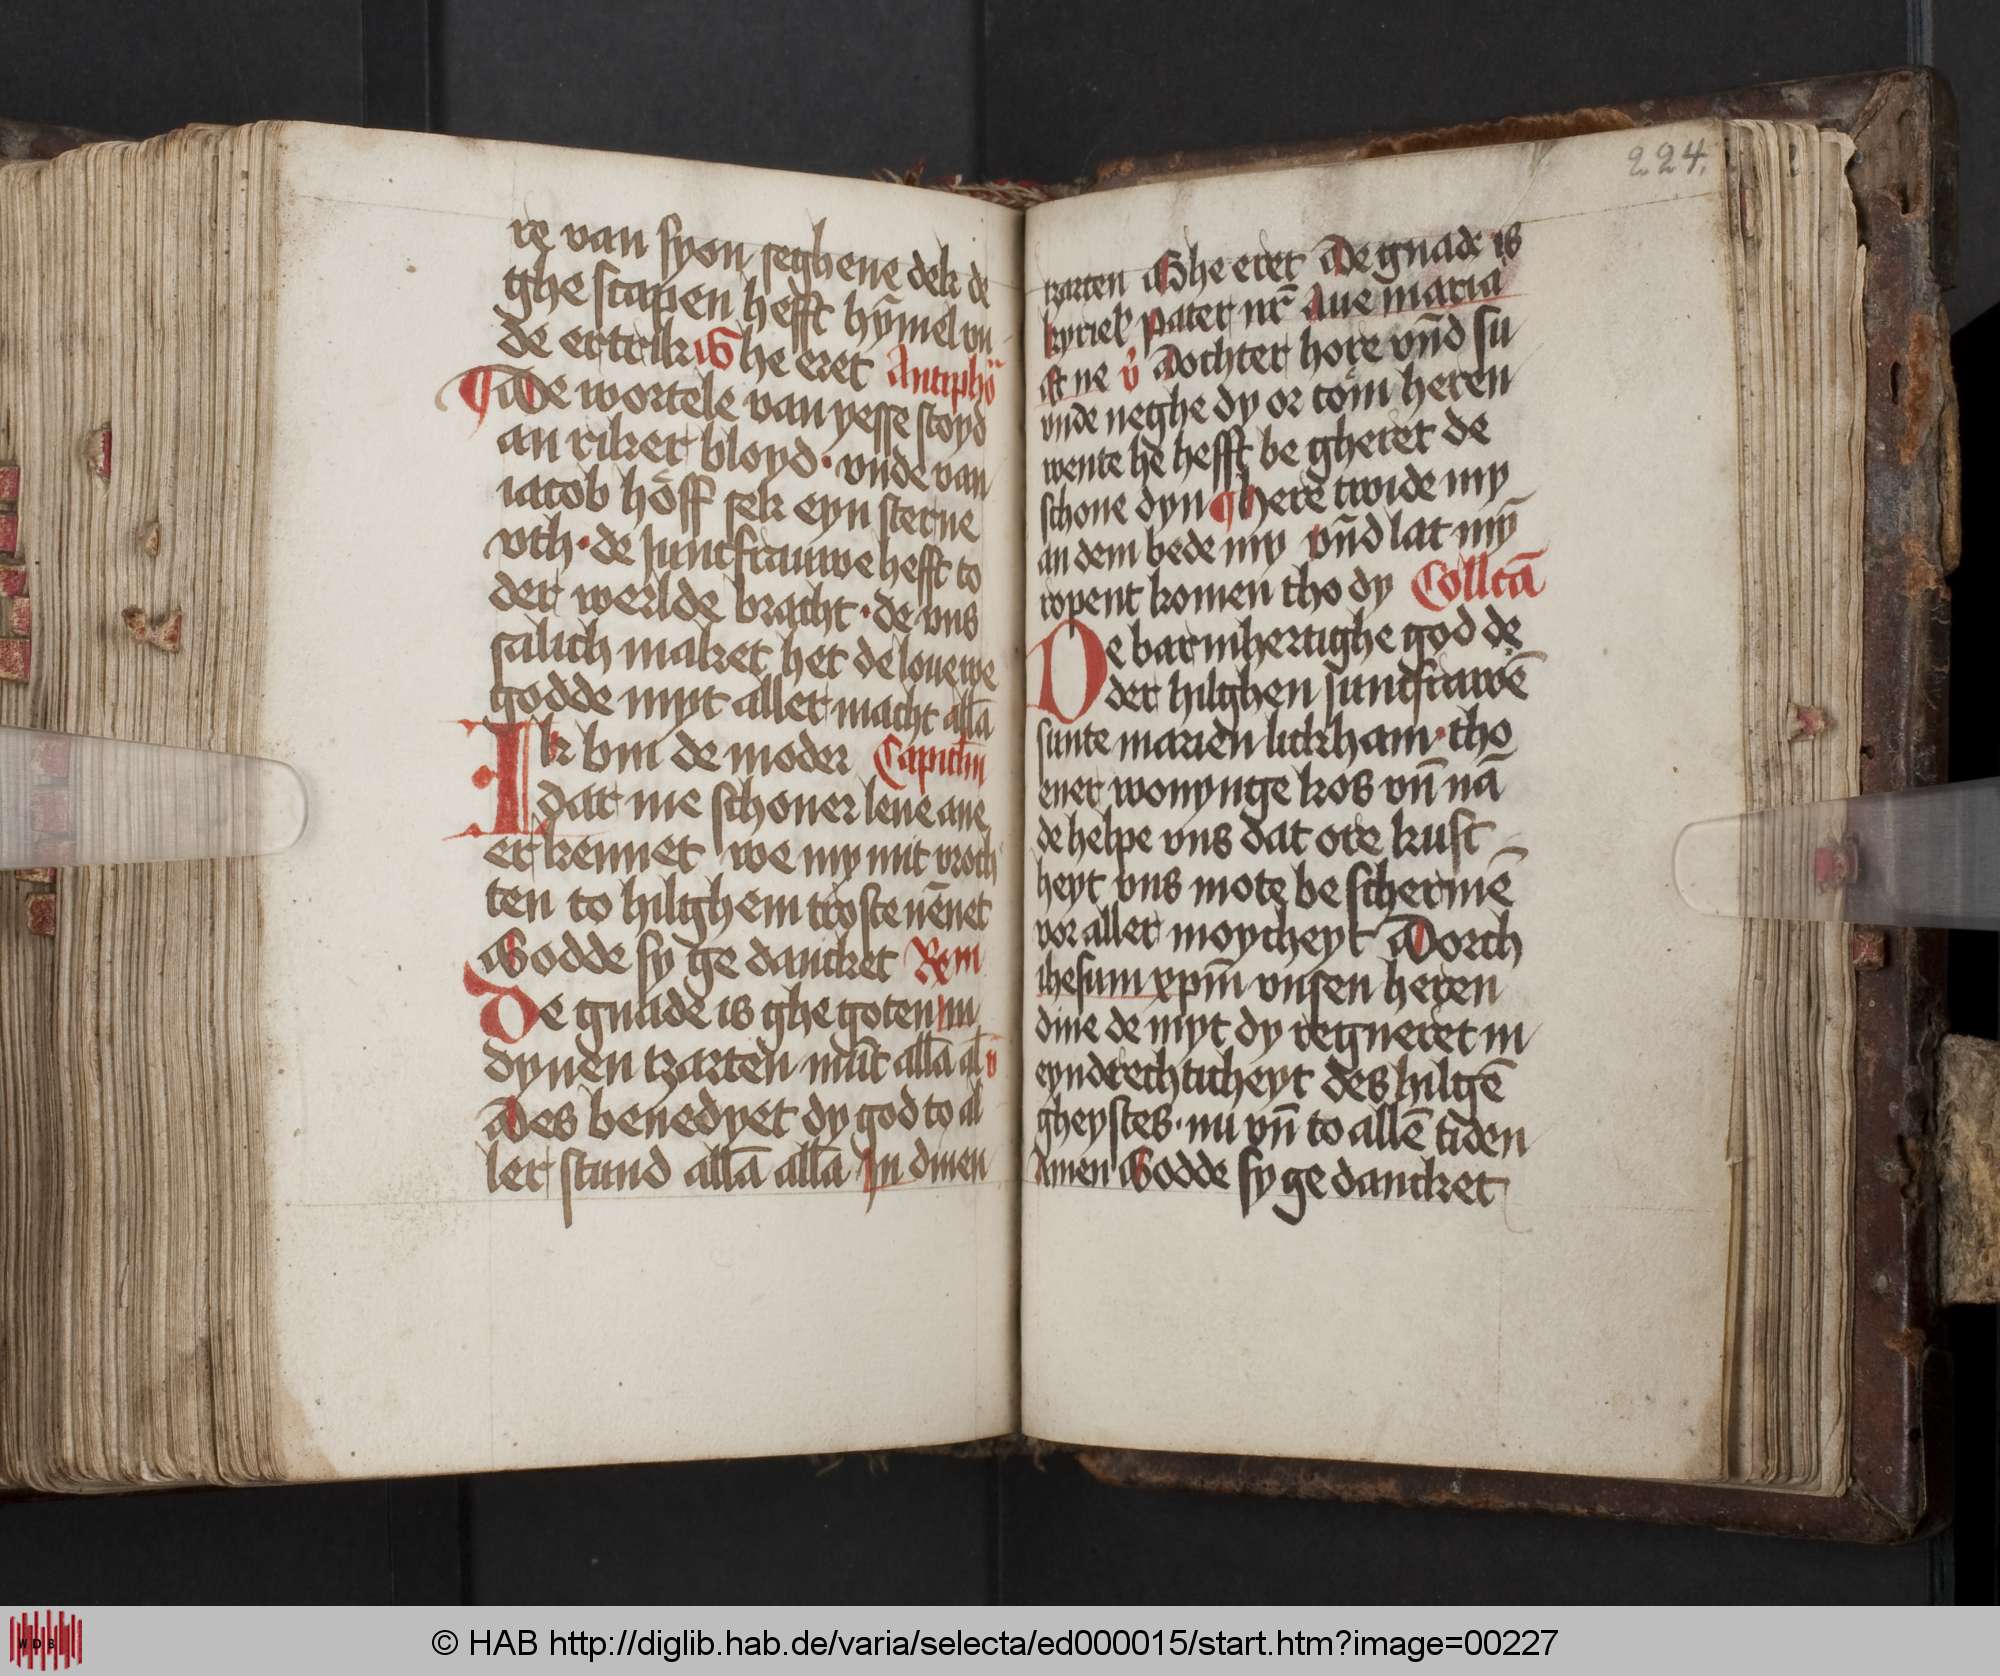 re van syon seghene dek de
ghe scapen hefft hym̄el vn
de ertrik Ghe eret Antiphō
De wortele van yesse stoyd
an riker bloyd · vnde van
iacob hoͤff sek eyn sterne
vth · de Juncfrauwe hefft to
der werlde bracht · de vns
salich maket het de loue we
godde myt aller macht all̄a
Ik bin de moder Capitl̄m
dat me schoner leue ane
er kennet we my mit vroch
ten to hilghem troste nēnet
Godde sy ge dancket Rem
De gnade is ghe goten in
dynen tzarten mūt all̄a al̄ v̄
Des benedyet dy god to al
ler stund all̄a all̄a In dinen
224.
tzarten Ghe eret De gnade is
kyriel̄ Pater nr̄ Aue maria
v̄ Dochter hore vn̄d su
vnde neghe dy or to̊m heren
wente he hefft be gheret de
schone dyn here twide my
an dem bede my vn̄d lat my̅
ropent komen tho dy Collcā
De barmhertighe god de
der hilghen iuncfrawē
sunte marien lickham · tho
ener wonynge kos vn̄ nā
de helpe vns dat ore kusc
heyt vns mote be schermē
vor aller moycheyt Dorch
ihesum xpm̄ vnsen heren
dine de myt dy regneret in
eyndrechticheyt des hilgē
gheystes · nu vn̄ to allē tiden
Amen Godde sy ge dancket
WDB
© HAB http://diglib.hab.de/varia/selecta/ed000015/start.htm?image=00227